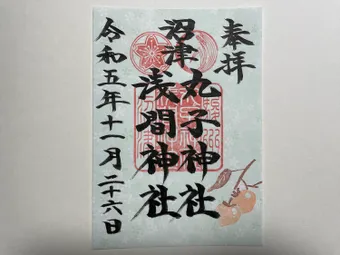 奉拝
沼津
丸子神社
浅間神社
令和五年十一月二十六日